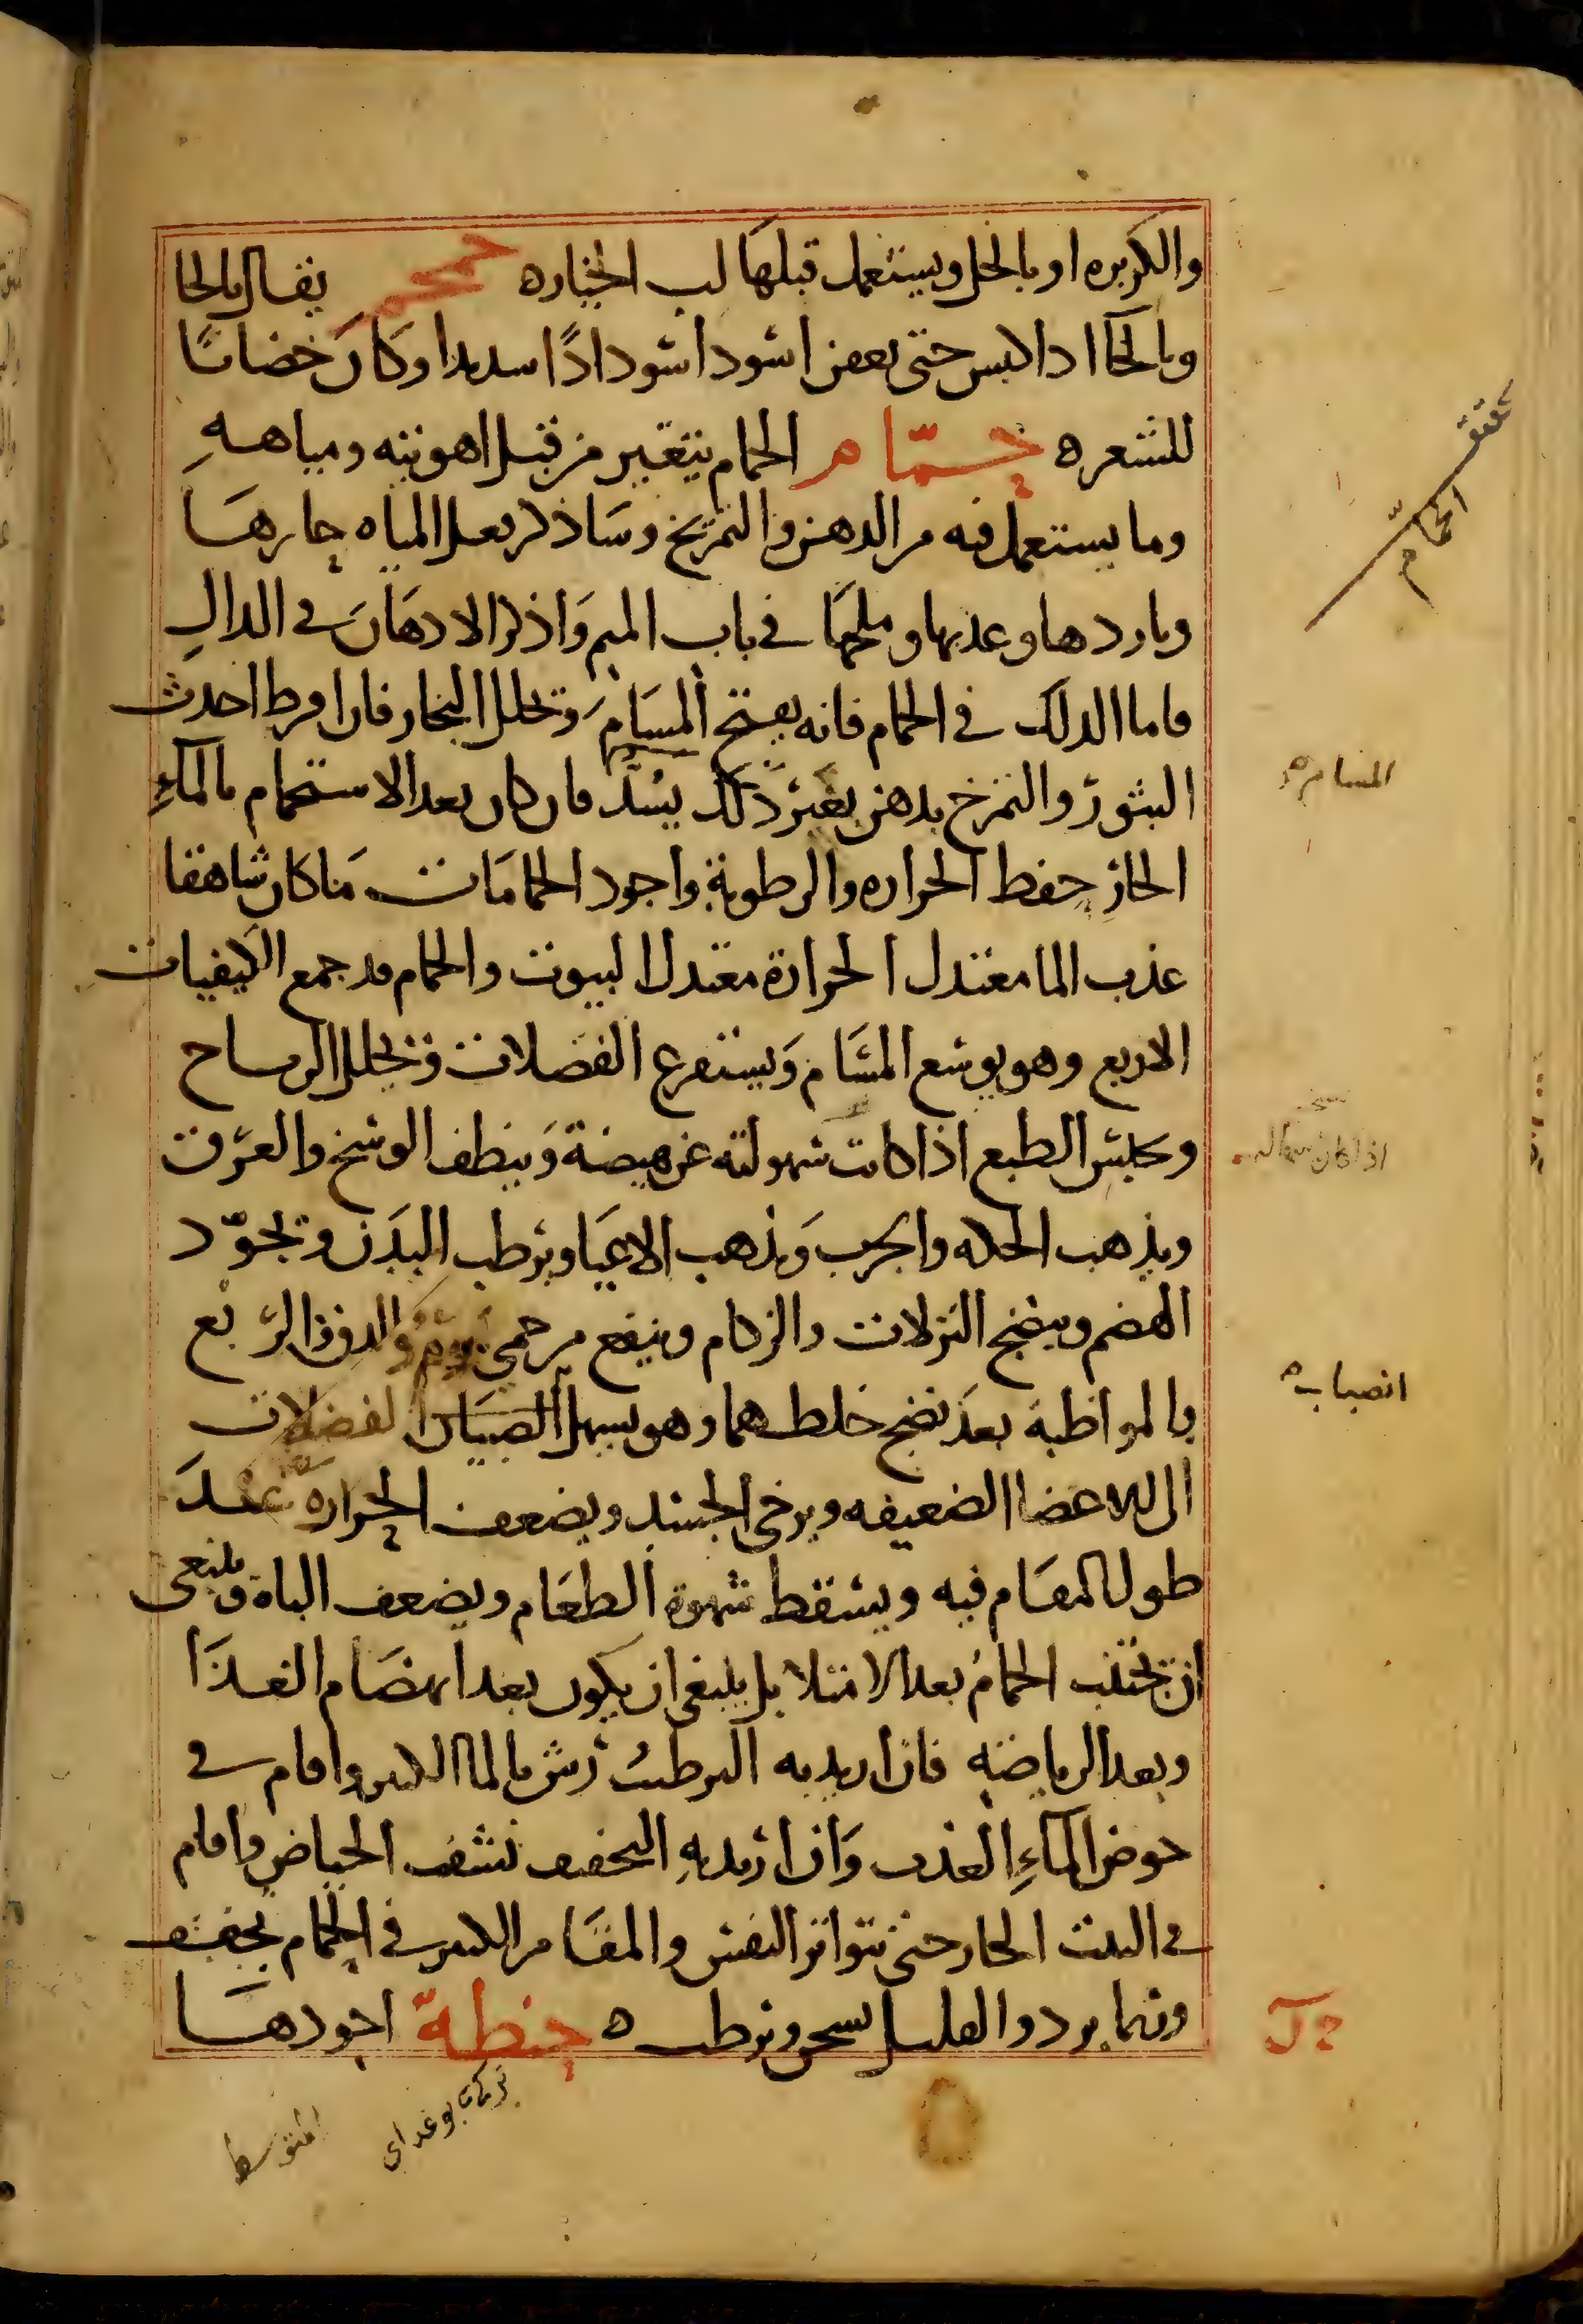 والكزبره او بالخل ويستعمل قبلها لب الخياره حمحم يقال بالحا
وبالخا اذا لبس حتى يعفن اسود اسودادًا شديدا وكان خضابًا
للشعره حمّام الحمام يتغير من قبل اهويته ومياهه
وما يستعمل فيه من الدهن والتمريخ وساذكر فعل المياه حارها
وباردها وعذبها وملحها في باب الميم واذكر الادهان في الدال
فاما الدلك في الحمام فانه يفتح المسام وتحلل البخار فان افرط احدث
البثور والتمرخ بدهن بغير دلك يسد فان كان بعد الاستحمام بالماء
الحار حفظ الحراره والرطوبة واجود الحمامات ما كان شاهقا
عذب الما معتدل الحرارة معتدل البيوت والحمام قد جمع الكيفيات
الاربع وهو يوسع المسام ويستفرغ الفضلات وتحلل الرياح
وحبس الطبع اذا كانت سهولته عن هيضة وينظف الوسخ والعرق
ويذهب الحكه والجرب ويذهب الاعيا ويرطب البدن وتجوّد
الهضم وينضج النزلات والزكام وينفع من حمى يوم والدق والربع
بالمواظبة بعد نضج خلطهما وهو يسهل انصباب الفضلات
الى الاعضا الضعيفه ويرخي الجسد ويضعف الحراره عند
طول المقام فيه ويسقط شهوة الطعام ويضعف الباه وينبغي
ان تجتنب الحمام بعد الامتلا بل ينبغي ان يكون بعد انهضام الغذا
وبعد الرياضة فان اريد به الترطيب رش بالما الكثير واقام في
حوض الماء العذب وان اريد به التجفيف نشف الحياض واقام
في البيت الحار حتى تتواتر النفس والمقام الكثير في الحمام يجفف
وربما برد والقليل يسخن ويرطب ه حنطة اجودها
الحمام
المسام
اذا كان
انصباب
المتوسط